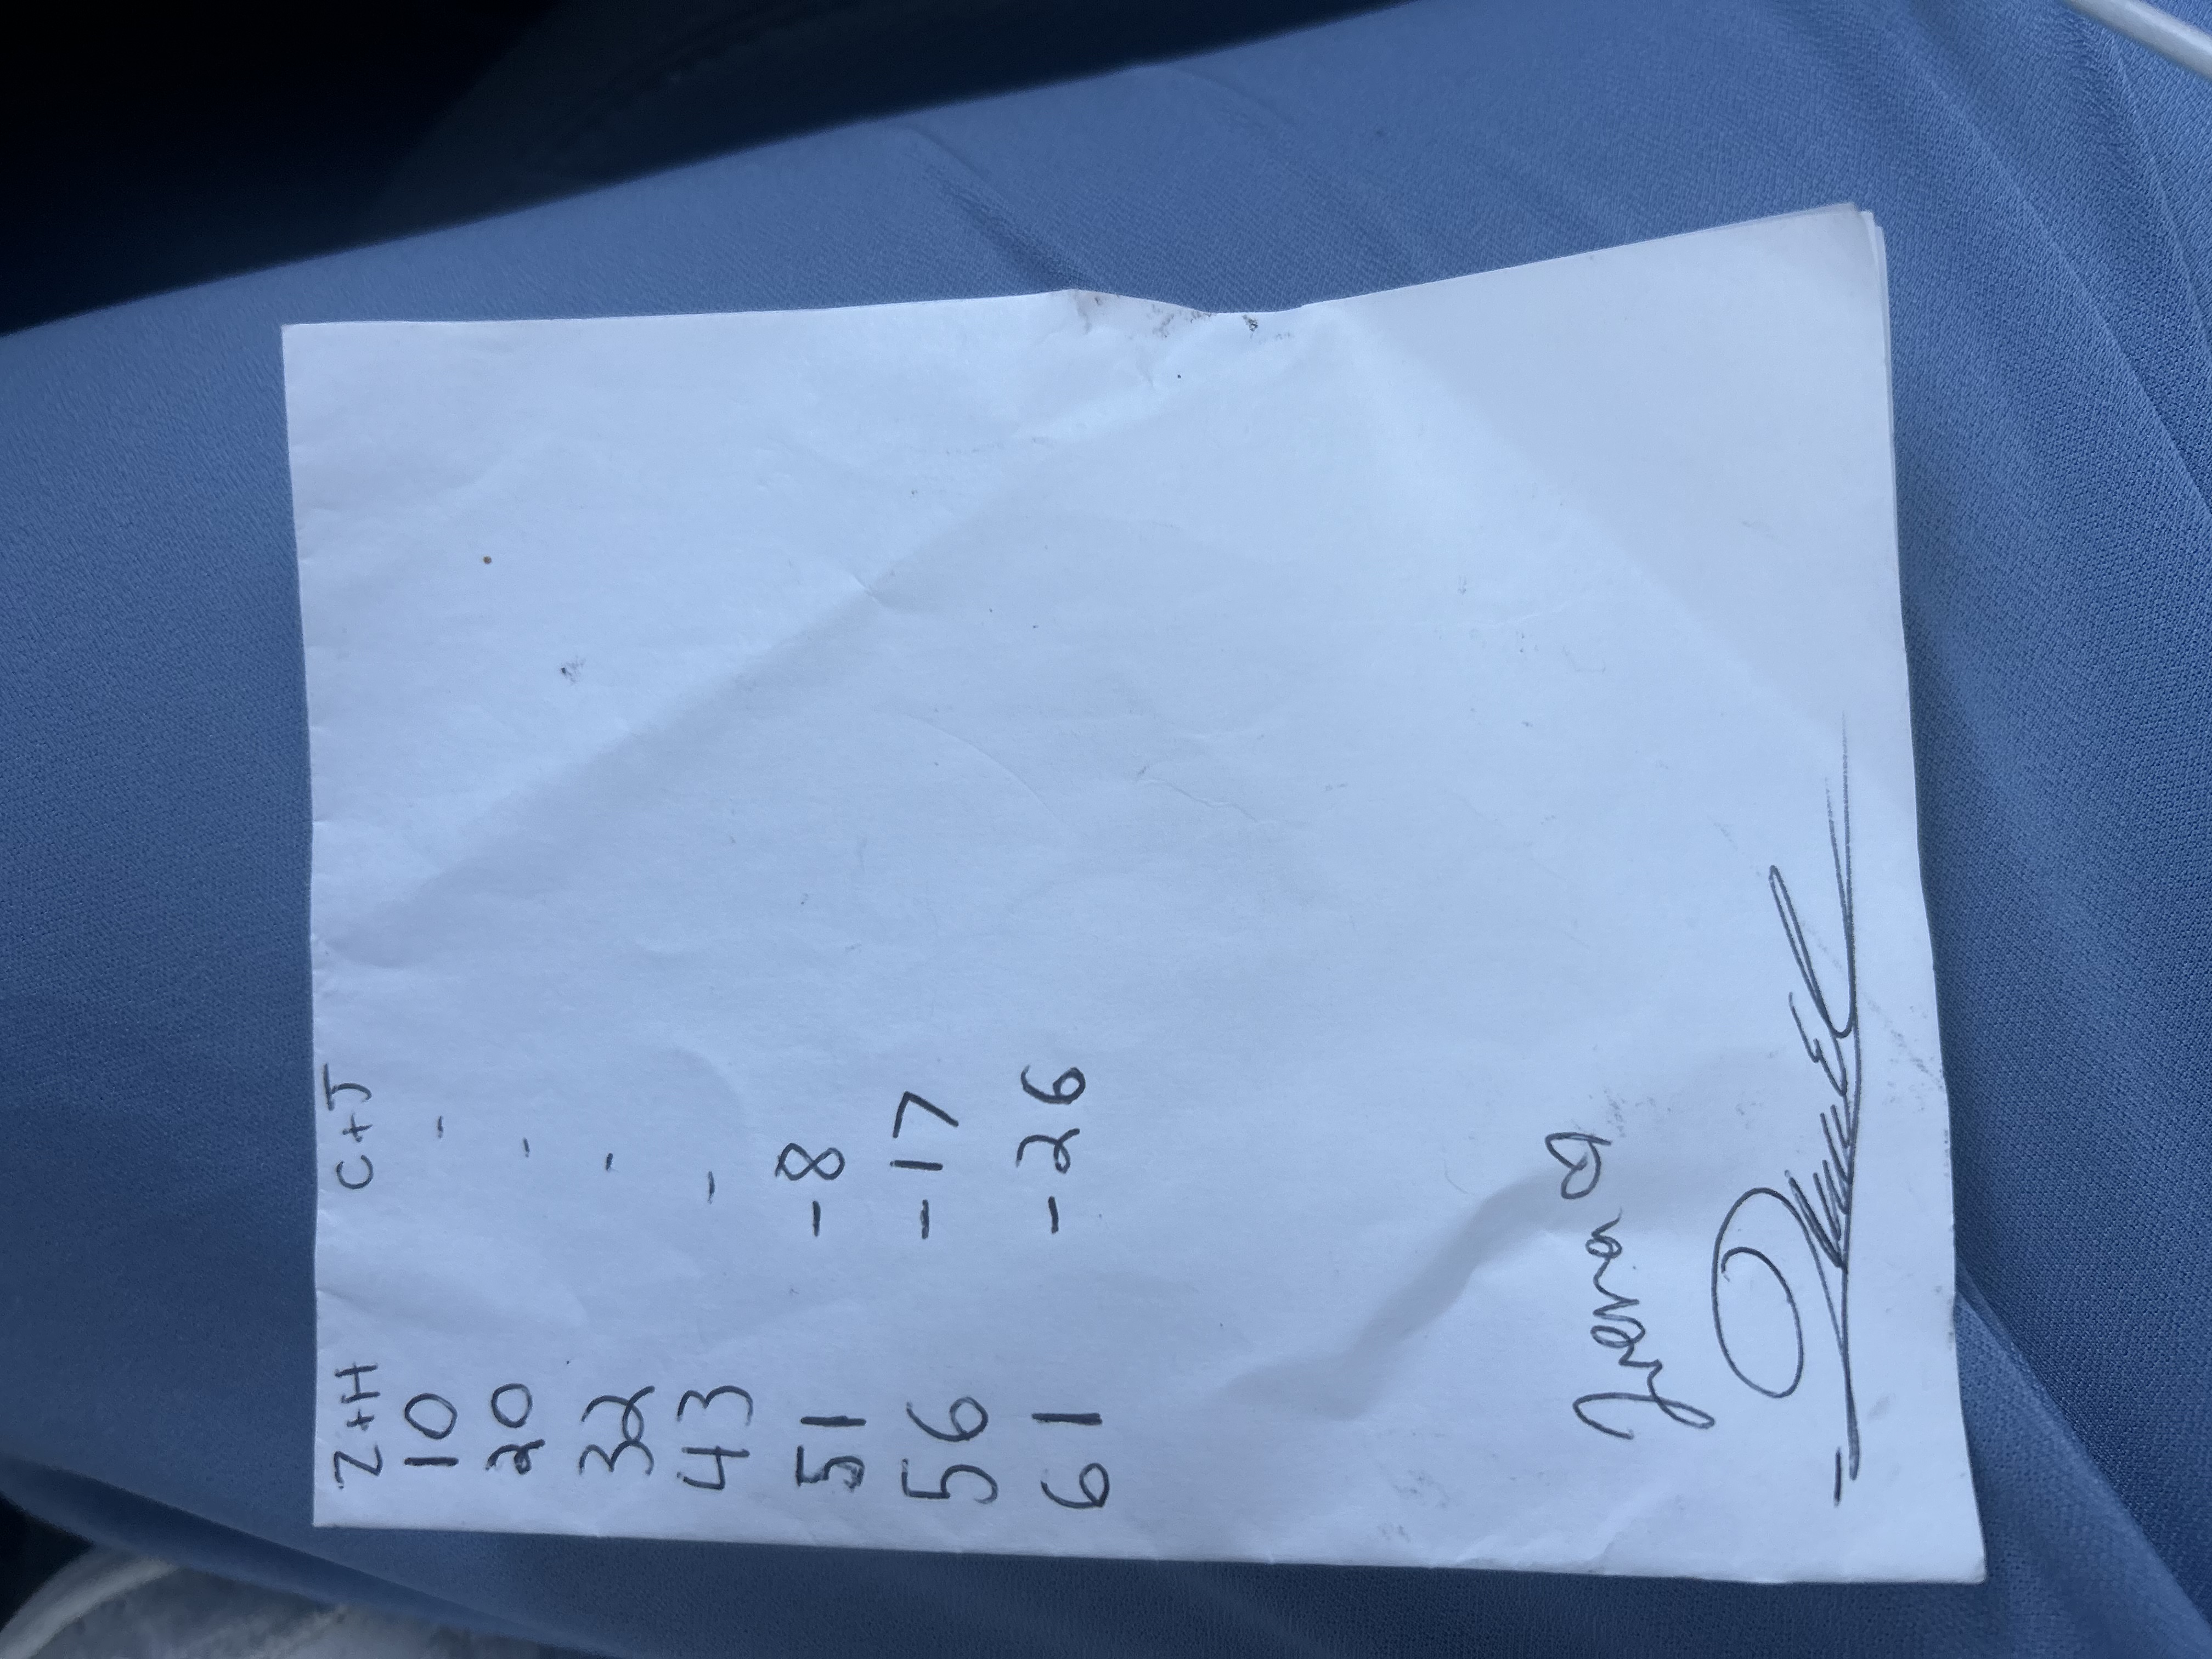 Z+H C+J
10 -
20 -
32 -
43 -
51 -8
56 -17
61 -26
Irena ♡